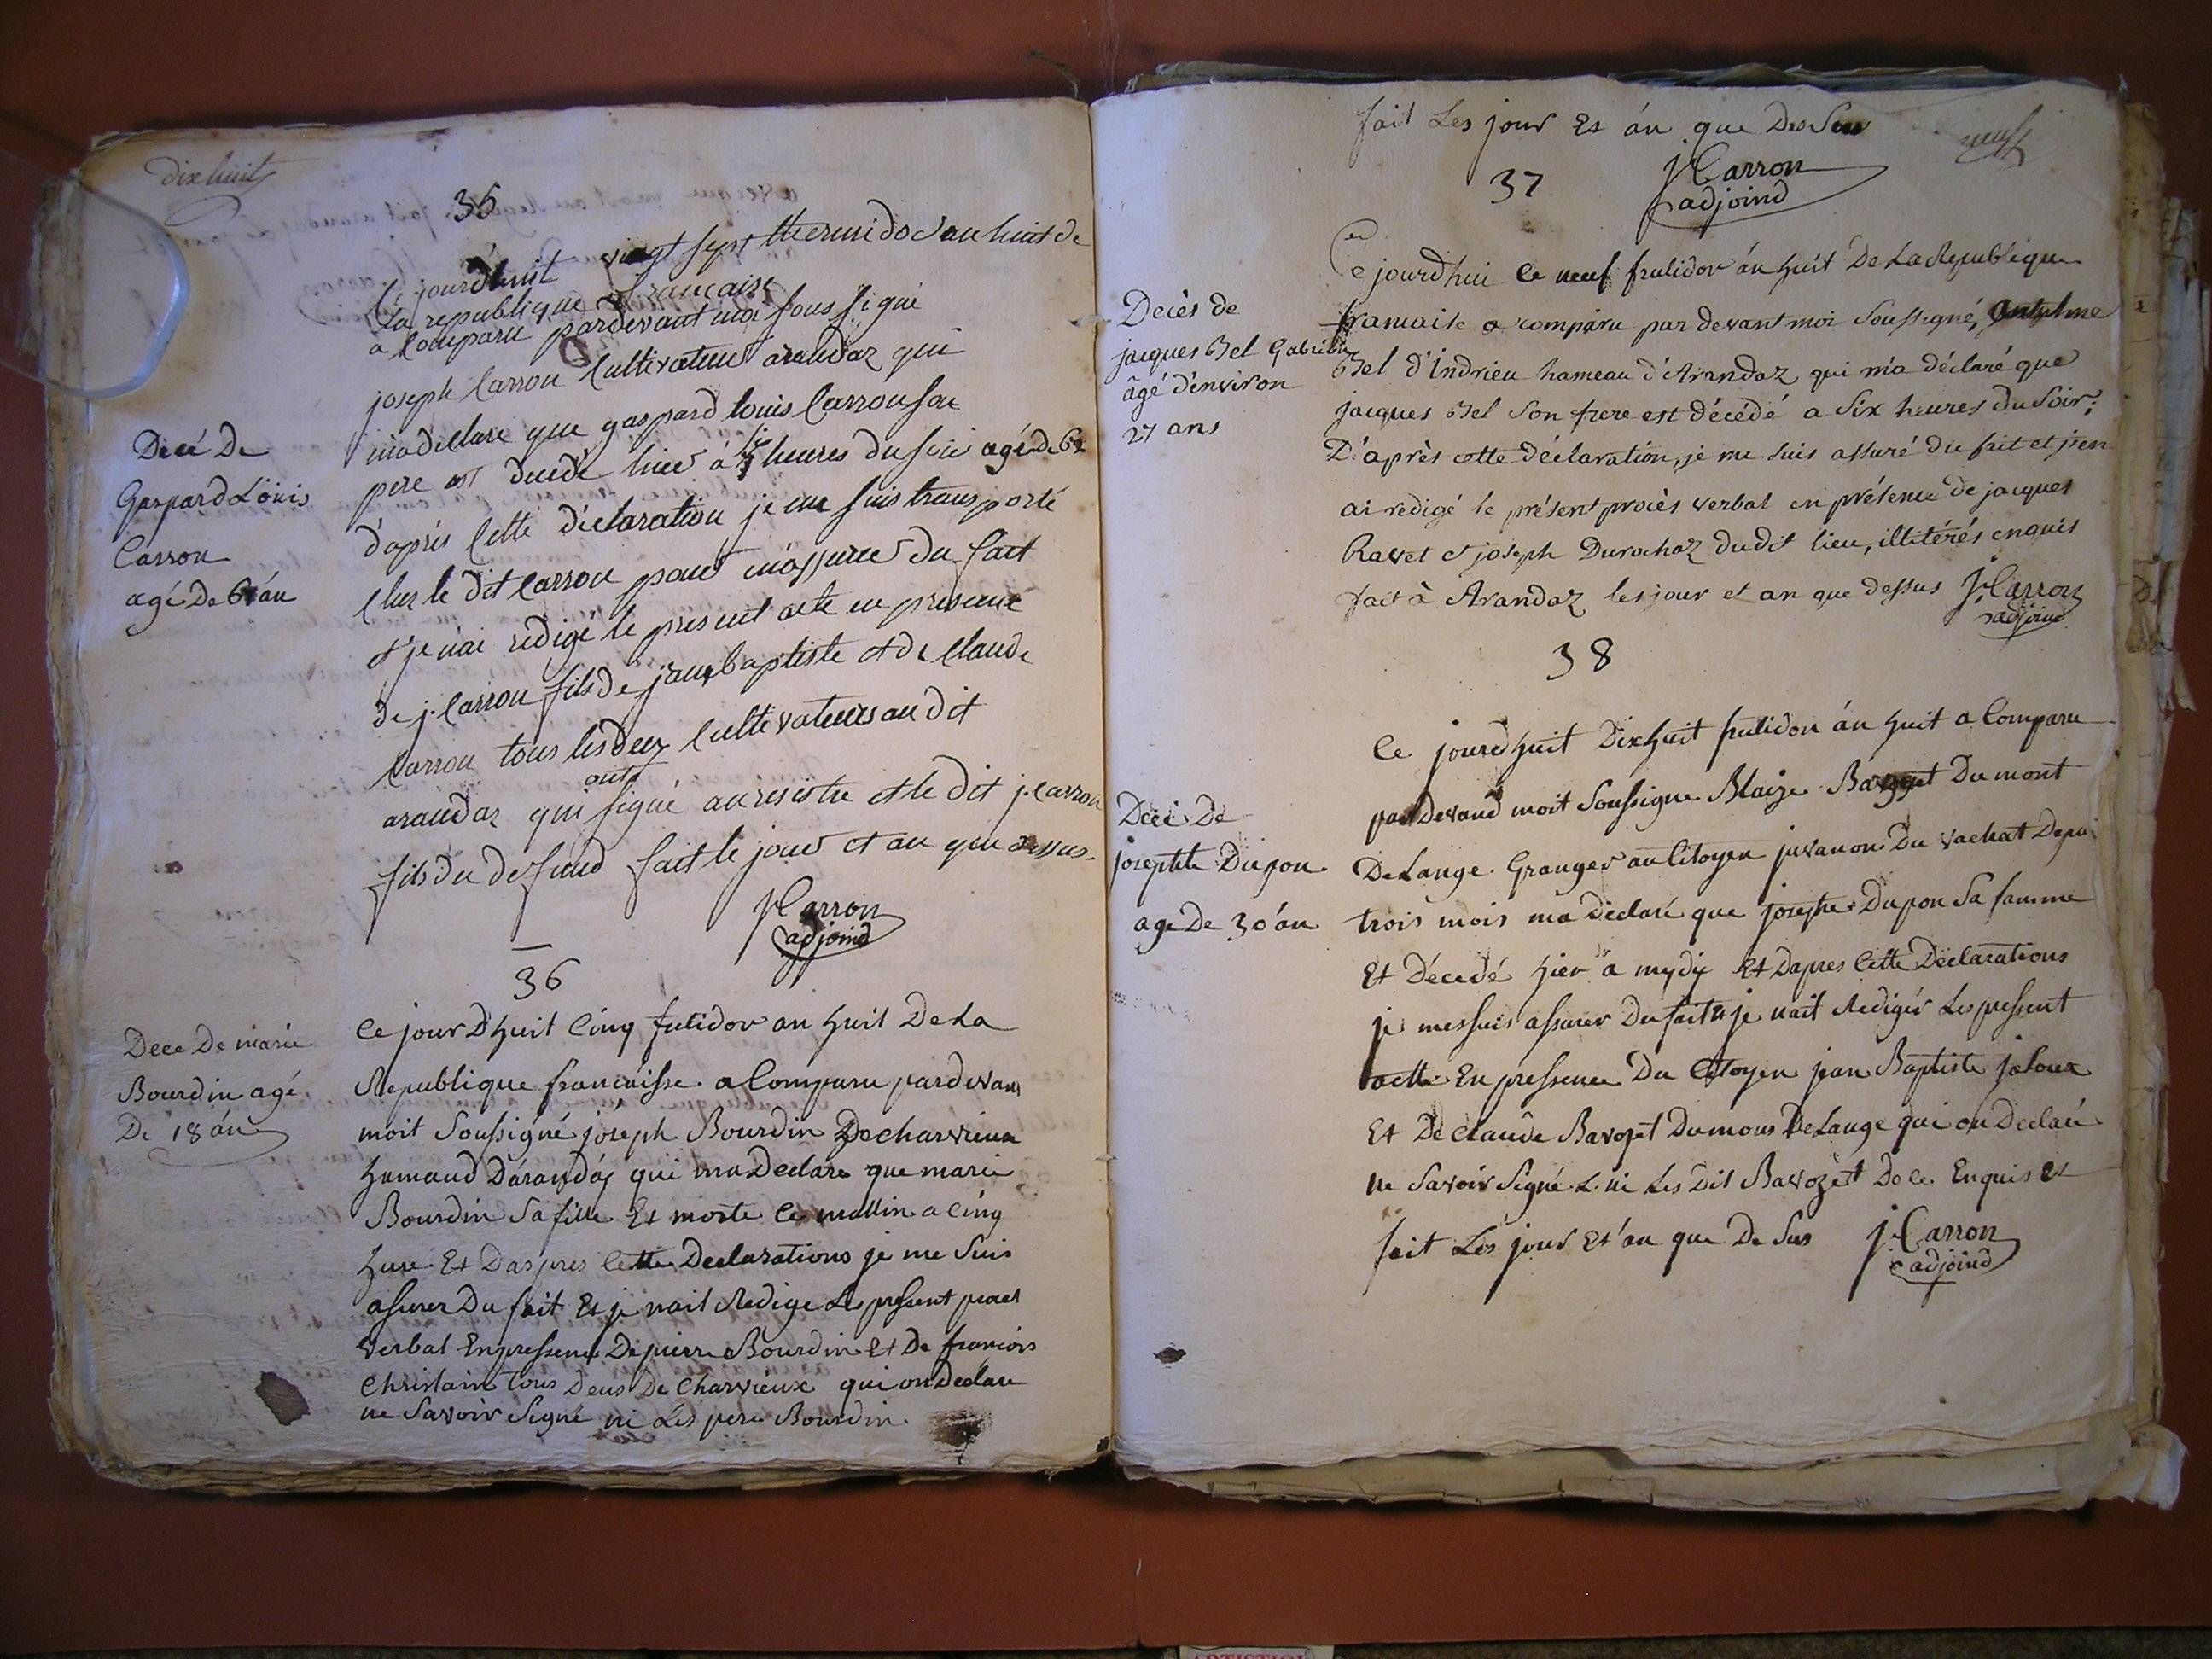 dixhuit
35
Ce jourdhuit vingt sept thermidor an huit de
la republique francaise
a comparu pardevant moi sous signé
joseph Carron Cultivateur arandaz qui
ma declare que gaspard louis Carron son
pere est decedé hier à heures du soir agé de 62
d'aprés Cette déclaration je me suis transporté
Ches le dit Carron pour m'assurer du fait
et je nai redigé le present acte en presence
de j. Carron fils de jean baptiste et de Claude
Carron tous les deux Cultivateurs au dit
arandaz qui ont signé au resistre et le dit j. Carron
fils du defund fait le jour et an que dessus
Decé De
Gaspard Loüis
Carron
agé De án
J Carron
adjoind
36
Dece De marie
Bourdin agé
De 18 án
Ce jour Dhuit Cinq frutidor an huit De La
Republique francaisse a Comparu pardevan
moit Soussigné joseph Bourdin De charvieux
hamaud Darandas qui ma Declare que marie
Bourdin Sa fille Et morte Ce mattin a Cinq
hure Et Daspres Cette Declarations je me Suis
assurer Du fait Et je nait Redige Le pressent proces
verbal En pressence De pierre Bourdin Et De francois
Christain tous Deus De Charvieux qui on Declare
ne Savoir Signé ni Les pere Bourdin
fait Les jour Et án que Des Sus
neuf
J Carron
adjoind
37
Decès de
jacques Bel Gabriel
âgé d'environ
27 ans
Ce jourd'hui le neuf frutidor án huit De La Republique
francaise a comparu par devant moi Soussigné, Anthelme
Bel d'Indrieu hameau d'Arandaz qui m'a déclaré que
jacques Bel Son frere est décédé a Six heures du Soir;
D'après cette déclaration, je me suis assuré du fait et j'en
ai redigé le présent procès verbal en présence de jacques
Ravet et joseph Durochaz dudit lieu, illitérés enquis
fait à Arandaz les jour et an que dessus J. Carron
adjoind
38
Decé De
josephte Dupon
age De 30 án
Ce jourdhuit Dix huit frutidor án huit a Comparu
par Devand moit Soussigne Blaize Du mont
De Lange Granger au Citoyen juvanon Du vachat Depui
trois mois ma Declaré que josephe Dupon Sa famme
Et Décedé hier a mydy Et Dapres Cette Déclarations
je mes suis assurer Du fait Et je nait Redigér Les pressent
acte En pressence Du Citoyen jean Baptiste jaloux
Et De Claude Bavozet Du mons De Lange qui on Declaré
ne Savoir Signé ni Les Dit Bavozet De Ce Enquis Et
fait Les jour Et an que De Sus J. Carron
adjoind